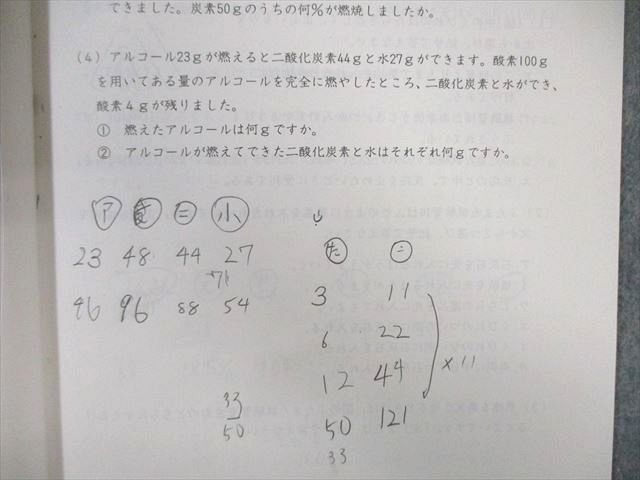 できました。炭素50gのうちの何%が燃焼しましたか。
(4) アルコール23gが燃えると二酸化炭素44gと水27gができます。酸素100g
を用いてある量のアルコールを完全に燃やしたところ、二酸化炭素と水ができ、
酸素4gが残りました。
① 燃えたアルコールは何gですか。
② アルコールが燃えてできた二酸化炭素と水はそれぞれ何gですか。
ア ニ
23 48 44 27
71
46 96 88 54
33
50
た ニ
3 11
6 22
12 44
×11
50 121
33